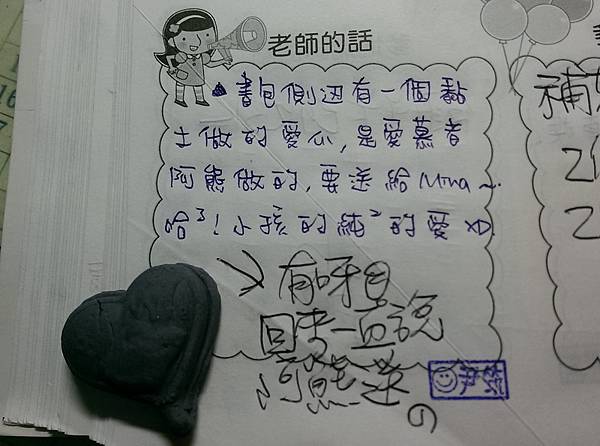 老師的話
書包側边有一個黏
土做的愛心,是愛慕者
阿熊做的,要送給Mina~
哈³!小孩的純²的愛 XD
有呀
回來一直說
阿熊送
的
補